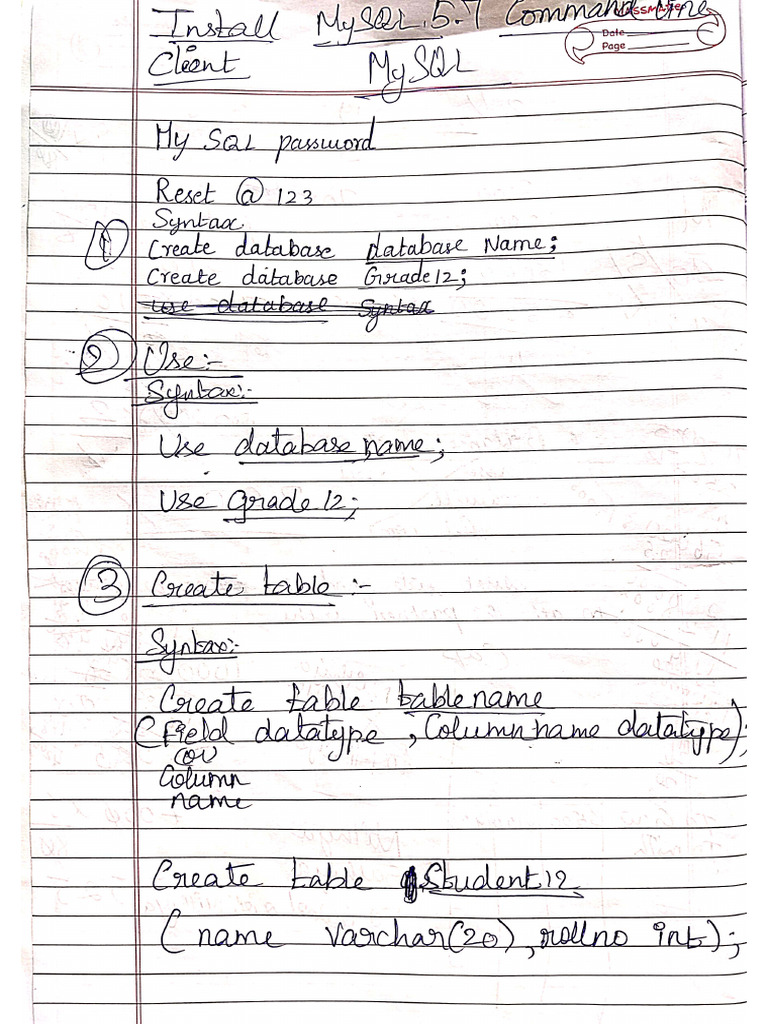 Install MySQL 5.7 Command line
CLASSMATE
Date
Page
Client MySQL
My SQL password
Reset @ 123
Syntax
1 Create database database Name;
Create database Grade12;
use database Syntax
2 Use:-
Syntax:-
Use database name;
Use Grade 12;
3 Create table :-
Syntax:-
Create table tablename
(Field datatype, Column name datatype);
or
Column
name
Create table Student12
(name varchar(20), rollno int);